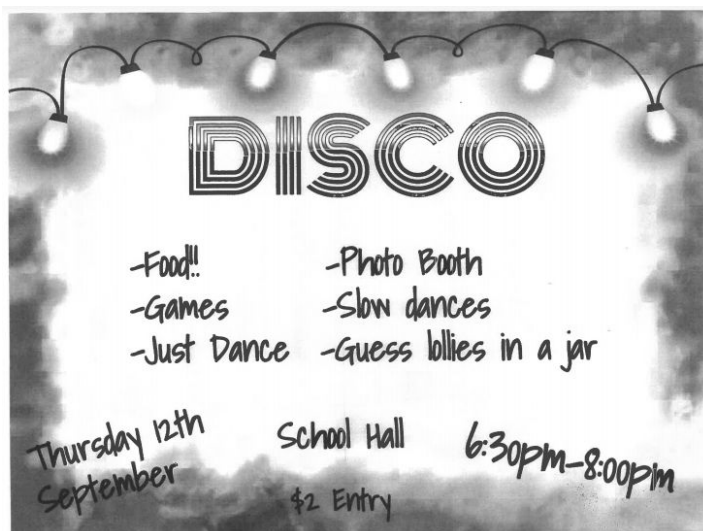 DISCO
-Food!!
-Games
-Just Dance
-Photo Booth
-Slow dances
-Guess lollies in a jar
Thursday 12th
September
School Hall
$2 Entry
6:30pm-8:00pm